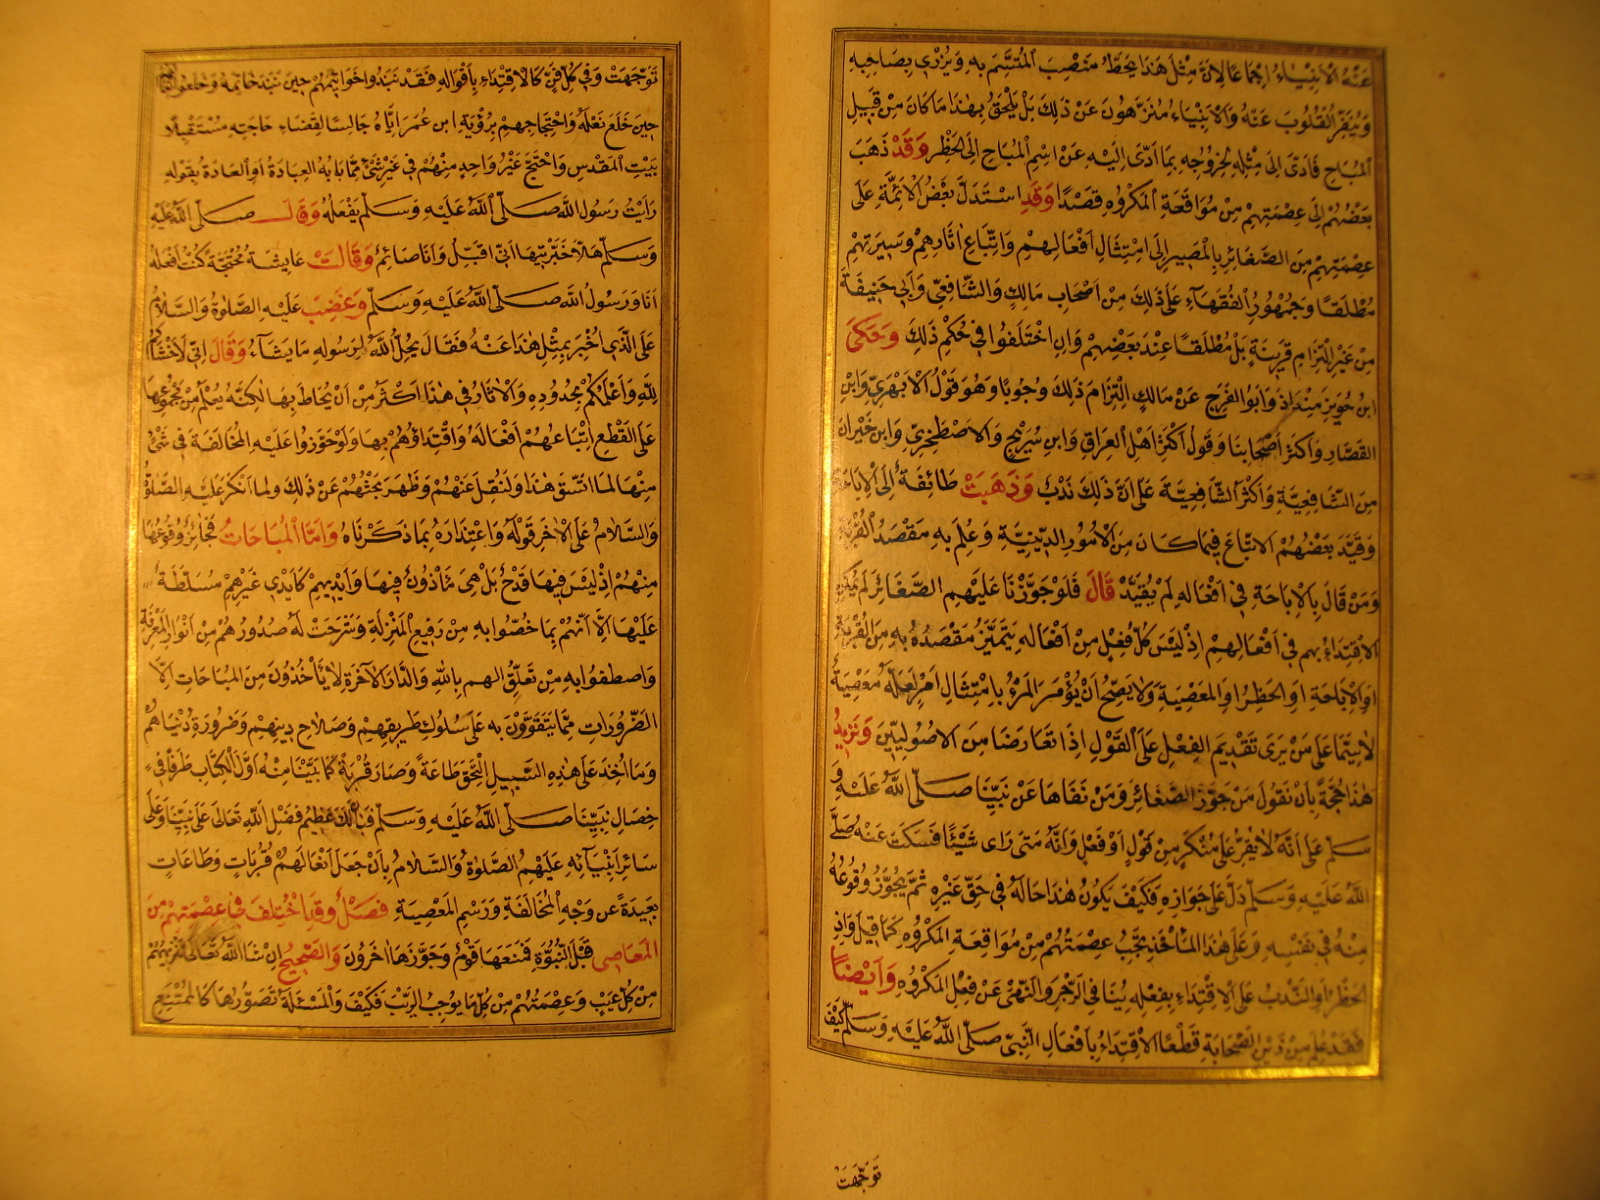 عَنْهُ الْاَنْبِيَاءُ اِجْمَاعًا لِاَنَّ مِثْلَ هَذَا يَحُطُّ مَنْصِبَ الْمُتَّسِمِ بِهِ وَيُزْرِي بِصَاحِبِهِ
وَيُنَفِّرُ الْقُلُوبَ عَنْهُ وَالْاَنْبِيَاءُ مُنَزَّهُونَ عَنْ ذَلِكَ بَلْ يَلْحَقُ بِهٰذَا مَا كَانَ مِنْ قَبِيلِ
الْمُبَاحِ فَاَدّٰى اِلَى مِثْلِهِ لِخُرُوجِهِ بِمَا اَدّٰى اِلَيْهِ عَنْ اِسْمِ الْمُبَاحِ اِلَى الْحَظْرِ وَقَدْ ذَهَبَ
بَعْضُهُمْ اِلَى عِصْمَتِهِمْ مِنْ مُوَاقَعَةِ الْمَكْرُوهِ قَصْدًا وَقَدِ اسْتَدَلَّ بَعْضُ الْاَئِمَّةِ عَلَى
عِصْمَتِهِمْ مِنَ الصَّغَائِرِ بِالْمَصِيرِ اِلَى امْتِثَالِ اَفْعَالِهِمْ وَاتِّبَاعِ اٰثَارِهِمْ وَسِيرَتِهِمْ
مُطْلَقًا وَجُمْهُورُ الْفُقَهَاءِ عَلَى ذَلِكَ مِنْ اَصْحَابِ مَالِكٍ وَالشَّافِعِيِّ وَاَبِي حَنِيفَةَ
مِنْ غَيْرِ الْتِزَامِ قَرِينَةٍ بَلْ مُطْلَقًا عِنْدَ بَعْضِهِمْ وَاِنِ اخْتَلَفُوا فِي حُكْمِ ذَلِكَ وَحَكَى
ابْنُ خُوَيْزِ مَنْدَاذَ وَاَبُو الْفَرَجِ عَنْ مَالِكٍ الْتِزَامَ ذَلِكَ وُجُوبًا وَهُوَ قَوْلُ الْاَبْهَرِيِّ وَابْنِ
الْقَصَّارِ وَاَكْثَرِ اَصْحَابِنَا وَقَوْلُ اَكْثَرِ اَهْلِ الْعِرَاقِ وَابْنِ سُرَيْجٍ وَالْاِصْطَخْرِيِّ وَابْنِ خَيْرَانَ
مِنَ الشَّافِعِيَّةِ وَاَكْثَرُ الشَّافِعِيَّةِ عَلَى اَنَّ ذَلِكَ نَدْبٌ وَذَهَبَتْ طَائِفَةٌ اِلَى الْاِبَاحَةِ
وَقَيَّدَ بَعْضُهُمُ الْاِتِّبَاعَ فِيمَا كَانَ مِنَ الْاُمُورِ الدِّينِيَّةِ وَعُلِمَ بِهِ مَقْصَدُ الْقُرْبَةِ
وَمَنْ قَالَ بِالْاِبَاحَةِ فِي اَفْعَالِهِ لَمْ يُقَيِّدْ قَالَ فَلَوْ جَوَّزْنَا عَلَيْهِمِ الصَّغَائِرَ لَمْ يُمْكِنِ
الْاِقْتِدَاءُ بِهِمْ فِي اَفْعَالِهِمْ اِذْ لَيْسَ كُلُّ فِعْلٍ مِنْ اَفْعَالِهِ يَتَمَيَّزُ مَقْصَدُهُ بِهِ مِنَ الْقُرْبَةِ
اَوِ الْاِبَاحَةِ اَوِ الْحَظْرِ اَوِ الْمَعْصِيَةِ وَلَا يَصِحُّ اَنْ يُؤْمَرَ الْمَرْءُ بِامْتِثَالِ اَمْرٍ لَعَلَّهُ مَعْصِيَةٌ
لَا سِيَّمَا عَلَى مَنْ يَرَى تَقْدِيمَ الْفِعْلِ عَلَى الْقَوْلِ اِذَا تَعَارَضَا مِنَ الْاُصُولِيِّينَ وَنَزِيدُ
هٰذَا حُجَّةً بِاَنْ نَقُولَ مَنْ جَوَّزَ الصَّغَائِرَ وَمَنْ نَفَاهَا عَنْ نَبِيِّنَا صَلَّى اللّٰهُ عَلَيْهِ وَ
سَلَّمَ عَلَى اَنَّهُ لَا يُقِرُّ عَلَى مُنْكَرٍ مِنْ قَوْلٍ اَوْ فِعْلٍ وَاَنَّهُ مَتَى رَاى شَيْئًا فَسَكَتَ عَنْهُ صَلَّى
اللّٰهُ عَلَيْهِ وَسَلَّمَ دَلَّ عَلَى جَوَازِهِ فَكَيْفَ يَكُونُ هٰذَا حَالَهُ فِي حَقِّ غَيْرِهِ ثُمَّ يَجُوزُ وُقُوعُهُ
مِنْهُ فِي نَفْسِهِ وَعَلَى هٰذَا الْمَأْخَذِ يَجِبُ عِصْمَتُهُمْ مِنْ مُوَاقَعَةِ الْمَكْرُوهِ كَمَا قِيلَ وَاِذِ
الْحَظْرُ اَوِ النَّدْبُ عَلَى الْاِقْتِدَاءِ بِفِعْلِهِ يُنَافِي الزَّجْرَ وَالنَّهْيَ عَنْ فِعْلِ الْمَكْرُوهِ وَاَيْضًا
فَقَدْ عُلِمَ مِنْ دِينِ الصَّحَابَةِ قَطْعًا الْاِقْتِدَاءُ بِاَفْعَالِ النَّبِيِّ صَلَّى اللّٰهُ عَلَيْهِ وَسَلَّمَ كَيْفَ
تَوَجَّهَتْ
تَوَجَّهَتْ وَفِي كُلِّ فَنٍّ كَالْاِقْتِدَاءِ بِاَقْوَالِهِ فَقَدْ نَبَذُوا خَوَاتِيمَهُمْ حِينَ نَبَذَ خَاتَمَهُ وَخَلَعُوا نِعَالَهُمْ
حِينَ خَلَعَ نَعْلَهُ وَاحْتِجَاجِهِمْ بِرُؤْيَةِ ابْنِ عُمَرَ اِيَّاهُ جَالِسًا لِقَضَاءِ حَاجَتِهِ مُسْتَقْبِلًا
بَيْتَ الْمَقْدِسِ وَاحْتَجَّ غَيْرُ وَاحِدٍ مِنْهُمْ فِي غَيْرِ شَيْءٍ مِمَّا بَابُهُ الْعِبَادَةُ اَوِ الْعَادَةُ بِقَوْلِهِ
رَاَيْتُ رَسُولَ اللّٰهِ صَلَّى اللّٰهُ عَلَيْهِ وَسَلَّمَ يَفْعَلُهُ وَقَالَ صَلَّى اللّٰهُ عَلَيْهِ
وَسَلَّمَ هَلَّا خَبَّرْتِيهَا اَنِّي اُقَبِّلُ وَاَنَا صَائِمٌ وَقَالَتْ عَايِشَةُ مُحْتَجَّةً كُنْتُ اَفْعَلُهُ
اَنَا وَرَسُولُ اللّٰهِ صَلَّى اللّٰهُ عَلَيْهِ وَسَلَّمَ وَغَضِبَ عَلَيْهِ الصَّلٰوةُ وَالسَّلَامُ
عَلَى الَّذِي اُخْبِرَ بِمِثْلِ هٰذَا عَنْهُ فَقَالَ يُحِلُّ اللّٰهُ لِرَسُولِهِ مَا يَشَاءُ وَقَالَ اِنِّي لَاَخْشَاكُمْ
لِلّٰهِ وَاَعْلَمُكُمْ بِحُدُودِهِ وَالْاٰثَارُ فِي هٰذَا اَكْثَرُ مِنْ اَنْ يُحَاطَ بِهَا لٰكِنَّهُ يُعْلَمُ مِنْ مَجْمُوعِهَا
عَلَى الْقَطْعِ اتِّبَاعُهُمْ اَفْعَالَهُ وَاقْتِدَاؤُهُمْ بِهَا وَلَوْ جَوَّزُوا عَلَيْهِ الْمُخَالَفَةَ فِي شَيْءٍ
مِنْهَا لَمَا اتَّسَقَ هٰذَا وَلَنُقِلَ عَنْهُمْ وَظَهَرَ بَحْثُهُمْ عَنْ ذَلِكَ وَلَمَا اَنْكَرَ عَلَيْهِ الصَّلٰوةُ
وَالسَّلَامُ عَلَى الْاٰخَرِ قَوْلَهُ وَاعْتِذَارَهُ بِمَا ذَكَرْنَاهُ وَاَمَّا الْمُبَاحَاتُ فَجَائِزٌ وُقُوعُهَا
مِنْهُمْ اِذْ لَيْسَ فِيهَا قَدْحٌ بَلْ هِيَ مَأْذُونٌ فِيهَا وَاَيْدِيهِمْ كَاَيْدِي غَيْرِهِمْ مُسَلَّطَةٌ
عَلَيْهَا اِلَّا اَنَّهُمْ بِمَا خُصُّوا بِهِ مِنْ رَفِيعِ الْمَنْزِلَةِ وَشُرِحَتْ لَهُ صُدُورُهُمْ مِنْ اَنْوَارِ الْمَعْرِفَةِ
وَاصْطُفُوا بِهِ مِنْ تَعَلُّقِ الهم بِاللّٰهِ وَالدَّارِ الْاٰخِرَةِ لَا يَأْخُذُونَ مِنَ الْمُبَاحَاتِ اِلَّا
الضَّرُورَاتِ مِمَّا يَتَقَوَّوْنَ بِهِ عَلَى سُلُوكِ طَرِيقِهِمْ وَصَلَاحِ دِينِهِمْ وَضَرُورَةِ دُنْيَاهُمْ
وَمَا اُخِذَ عَلَى هٰذِهِ السَّبِيلِ الْتَحَقَ طَاعَةً وَصَارَ قُرْبَةً كَمَا بَيَّنَّا مِنْهُ اَوَّلَ الْكِتَابِ طَرَفًا فِي
خِصَالِ نَبِيِّنَا صَلَّى اللّٰهُ عَلَيْهِ وَسَلَّمَ فَبَانَ لَكَ عَظِيمُ فَضْلِ اللّٰهِ تَعَالَى عَلَى نَبِيِّنَا وَعَلَى
سَائِرِ اَنْبِيَائِهِ عَلَيْهِمُ الصَّلٰوةُ وَالسَّلَامُ بِاَنْ جَعَلَ اَفْعَالَهُمْ قُرُبَاتٍ وَطَاعَاتٍ
بَعِيدَةً عَنْ وَجْهِ الْمُخَالَفَةِ وَرَسْمِ الْمَعْصِيَةِ فَصْلٌ وَقَدِ اخْتُلِفَ فِي عِصْمَتِهِمْ مِنَ
الْمَعَاصِي قَبْلَ النُّبُوَّةِ فَمَنَعَهَا قَوْمٌ وَجَوَّزَهَا اٰخَرُونَ وَالصَّحِيحُ اِنْ شَا اللّٰهُ تَعَالَى تَنْزِيهُهُمْ
مِنْ كُلِّ عَيْبٍ وَعِصْمَتُهُمْ مِنْ كُلِّ مَا يُوجِبُ الرَّيْبَ فَكَيْفَ وَالْمَسْئَلَةُ تَصَوُّرُهَا كَالْمُمْتَنِعِ